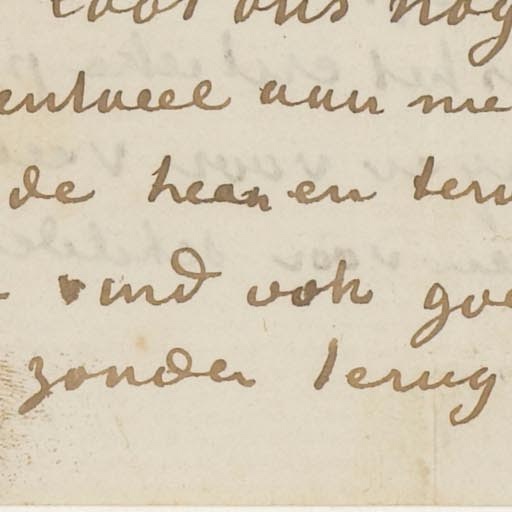 voor ons nog
entueel aan me
de heenen teru
vind ook goe
zonder terug